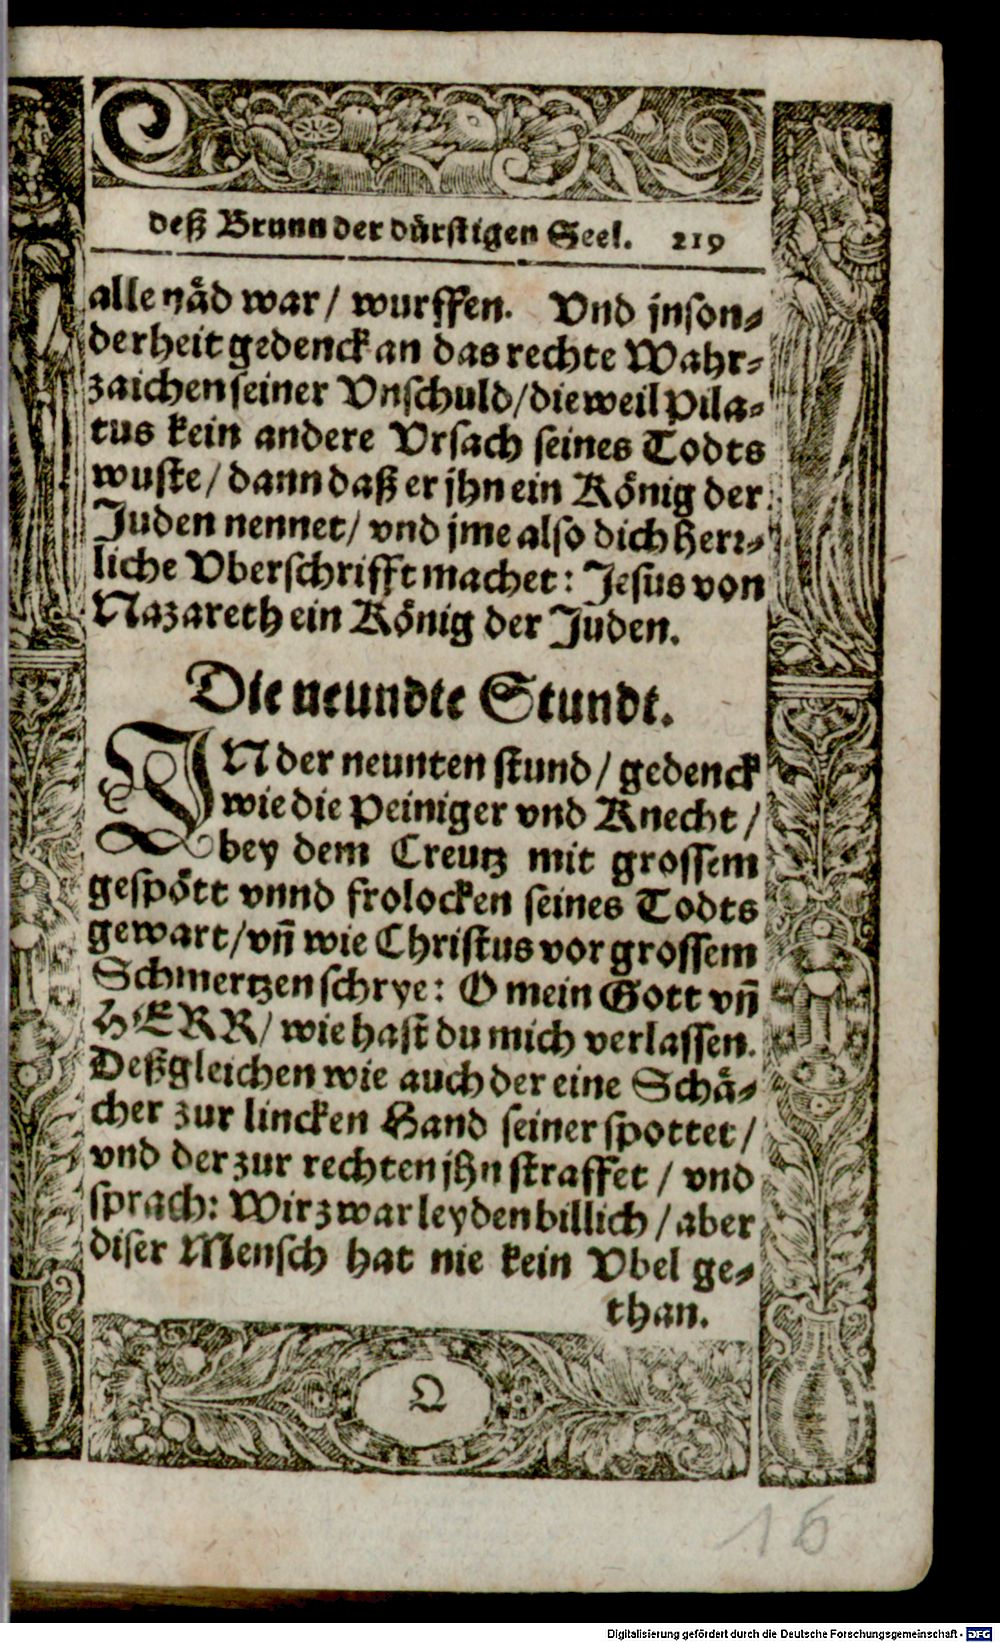 deß Brunn der dürstigen Seel. 219
alle näd war / wurffen. Vnd jnson⸗
derheit gedenck an das rechte Wahr⸗
zaichen seiner Vnschuld / dieweil Pila⸗
tus kein andere Vrsach seines Todts
wuste / dann daß er jhn ein König der
Juden nennet / vnd jme also dich herr⸗
liche Vberschrifft machet: Jesus von
Nazareth ein König der Juden.
Die neundte Stundt.
IN der neunten stund / gedenck
wie die Peiniger vnd Knecht /
bey dem Creutz mit grossem
gespött vnnd frolocken seines Todts
gewart / vñ wie Christus vor grossem
Schmertzen schrye: O mein Gott vñ
HERR / wie hast du mich verlassen.
Deßgleichen wie auch der eine Schä⸗
cher zur lincken Hand seiner spottet /
vnd der zur rechten jhn straffet / vnd
sprach: Wir zwar leyden billich / aber
diser Mensch hat nie kein Vbel ge⸗
than.
Q
16
Digitalisierung gefördert durch die Deutsche Forschungsgemeinschaft - DFG